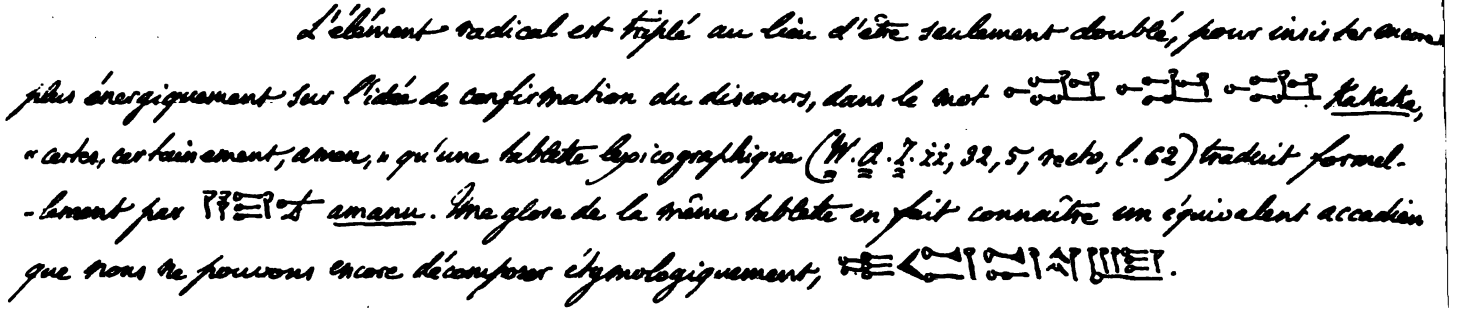 L'élément radical est triplé au lieu d'être seulement doublé, pour insister encore
plus énergiquement sur l'idée de confirmation du discours, dans le mot 𒅗 𒅗 𒅗 kakaka,
« certes, certainement, amen, » qu'une tablette lexicographique (W.A.I. ii, 32, 5, recto, l. 62) traduit formel-
-lement par amanu. Une glose de la même tablette en fait connaître un équivalent accadien
que nous ne pouvons encore décomposer étymologiquement,